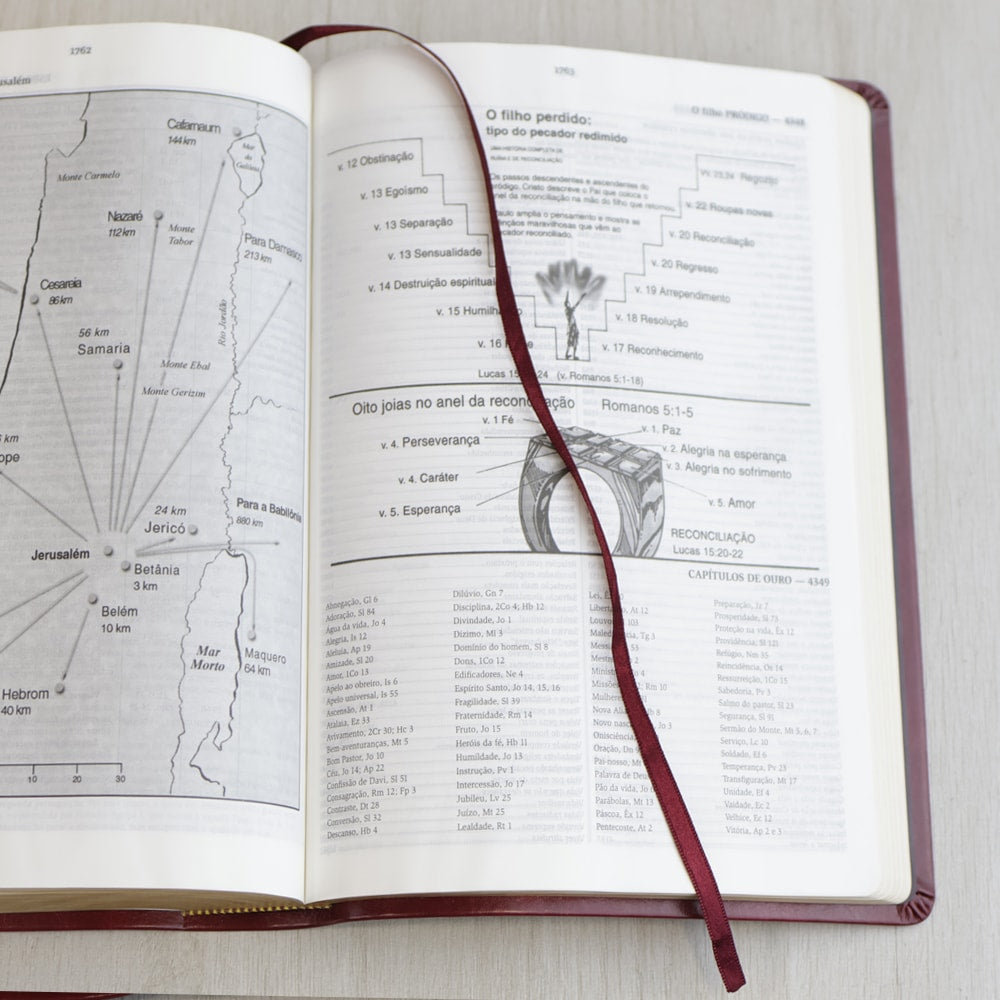 1762
usalém
Cafarnaum
144 km
Mar
da
Galiléia
Monte Carmelo
Nazaré
112 km
Monte
Tabor
Para Damasco
213 km
Cesareia
86 km
Rio Jordão
56 km
Samaria
Monte Ebal
Monte Gerizim
km
ope
Para a Babilônia
880 km
24 km
Jericó
Jerusalém
Betânia
3 km
Belém
10 km
Mar
Morto
Maquero
64 km
Hebrom
40 km
10 20 30
1763
O filho PRÓDIGO — 4348
O filho perdido:
tipo do pecador redimido
UMA HISTÓRIA COMPLETA DE
RUÍNA E DE RECONCILIAÇÃO
Os passos descendentes e ascendentes do
pródigo. Cristo descreve o Pai que coloca o
anel da reconciliação na mão do filho que retornou.
Paulo amplia o pensamento e mostra as
bênçãos maravilhosas que vêm ao
pecador reconciliado.
v. 12 Obstinação
v. 13 Egoísmo
v. 13 Separação
v. 13 Sensualidade
v. 14 Destruição espiritual
v. 15 Humilha
v. 16
vv. 23,24 Regozijo
v. 22 Roupas novas
v. 20 Reconciliação
v. 20 Regresso
v. 19 Arrependimento
v. 18 Resolução
v. 17 Reconhecimento
Lucas 15 24 (v. Romanos 5:1-18)
Oito joias no anel da reconciliação Romanos 5:1-5
v. 1 Fé
v. 4. Perseverança
v. 4. Caráter
v. 5. Esperança
v. 1. Paz
v. 2. Alegria na esperança
v. 3. Alegria no sofrimento
v. 5. Amor
RECONCILIAÇÃO
Lucas 15:20-22
CAPÍTULOS DE OURO — 4349
Abnegação, Gl 6
Adoração, Sl 84
Água da vida, Jo 4
Alegria, Is 12
Aleluia, Ap 19
Amizade, Sl 20
Amor, 1Co 13
Apelo ao obreiro, Is 6
Apelo universal, Is 55
Ascensão, At 1
Atalaia, Ez 33
Avivamento, 2Cr 30; Hc 3
Bem-aventuranças, Mt 5
Bom Pastor, Jo 10
Céu, Jo 14; Ap 22
Confissão de Davi, Sl 51
Consagração, Rm 12; Fp 3
Contraste, Dt 28
Conversão, Sl 32
Descanso, Hb 4
Dilúvio, Gn 7
Disciplina, 2Co 4; Hb 12
Divindade, Jo 1
Dízimo, Ml 3
Domínio do homem, Sl 8
Dons, 1Co 12
Edificadores, Ne 4
Espírito Santo, Jo 14, 15, 16
Fragilidade, Sl 39
Fraternidade, Rm 14
Fruto, Jo 15
Heróis da fé, Hb 11
Humildade, Jo 13
Instrução, Pv 1
Intercessão, Jo 17
Jubileu, Lv 25
Juízo, Mt 25
Lealdade, Rt 1
Lei, Êx
Liberta At 12
Louvor 103
Maled Tg 3
Messias 53
Mestre 2
Ministé 4
Missões Rm 10
Mulher
Nova Alian b 8
Novo nasc Jo 3
Onisciên
Oração, Dn 9
Pai-nosso, Mt
Palavra de Deus
Pão da vida, Jo 6
Parábolas, Mt 13
Páscoa, Êx 12
Pentecoste, At 2
Preparação, Js 7
Prosperidade, Sl 73
Proteção na vida, Êx 12
Providência, Sl 121
Refúgio, Nm 35
Reincidência, Os 14
Ressurreição, 1Co 15
Sabedoria, Pv 3
Salmo do pastor, Sl 23
Segurança, Sl 91
Sermão do Monte, Mt 5, 6, 7
Serviço, Lc 10
Soldado, Ef 6
Temperança, Pv 23
Transfiguração, Mt 17
Unidade, Ef 4
Vaidade, Ec 2
Velhice, Ec 12
Vitória, Ap 2 e 3